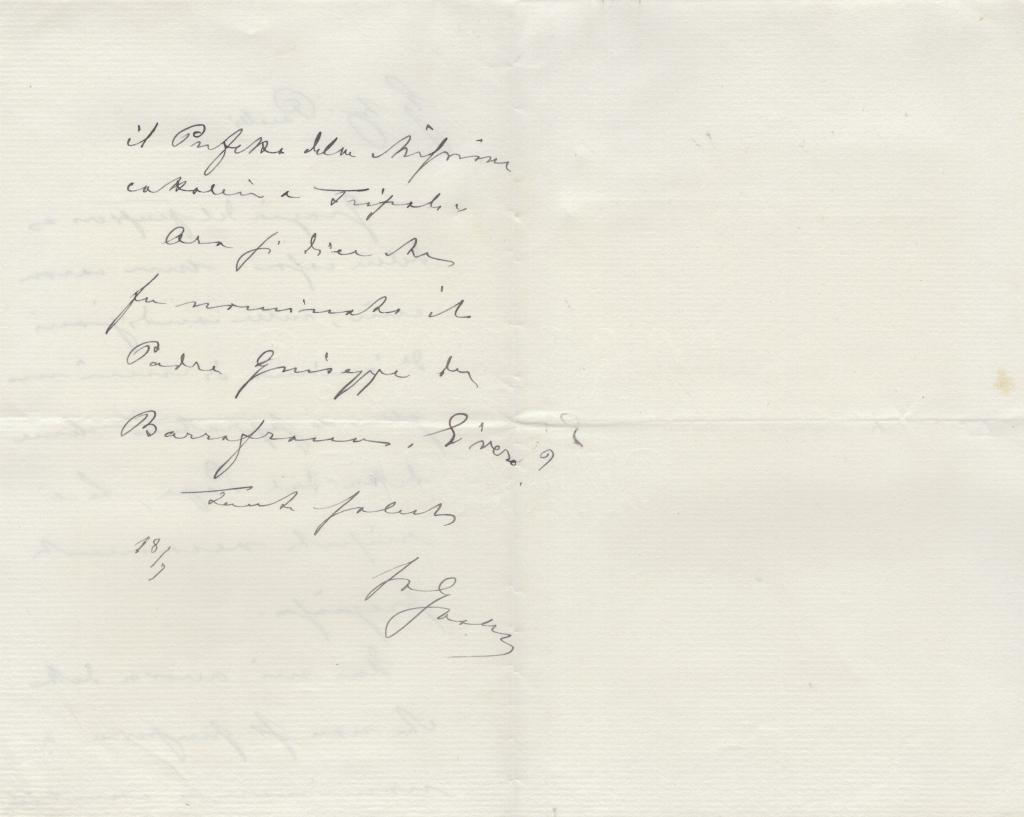 il Prefetto della Missione
cattolica a Tripoli.
Ora si dice che
fu nominato il
Padre Giuseppe da
Barrafranca. È vero?
Tanti saluti
18/7